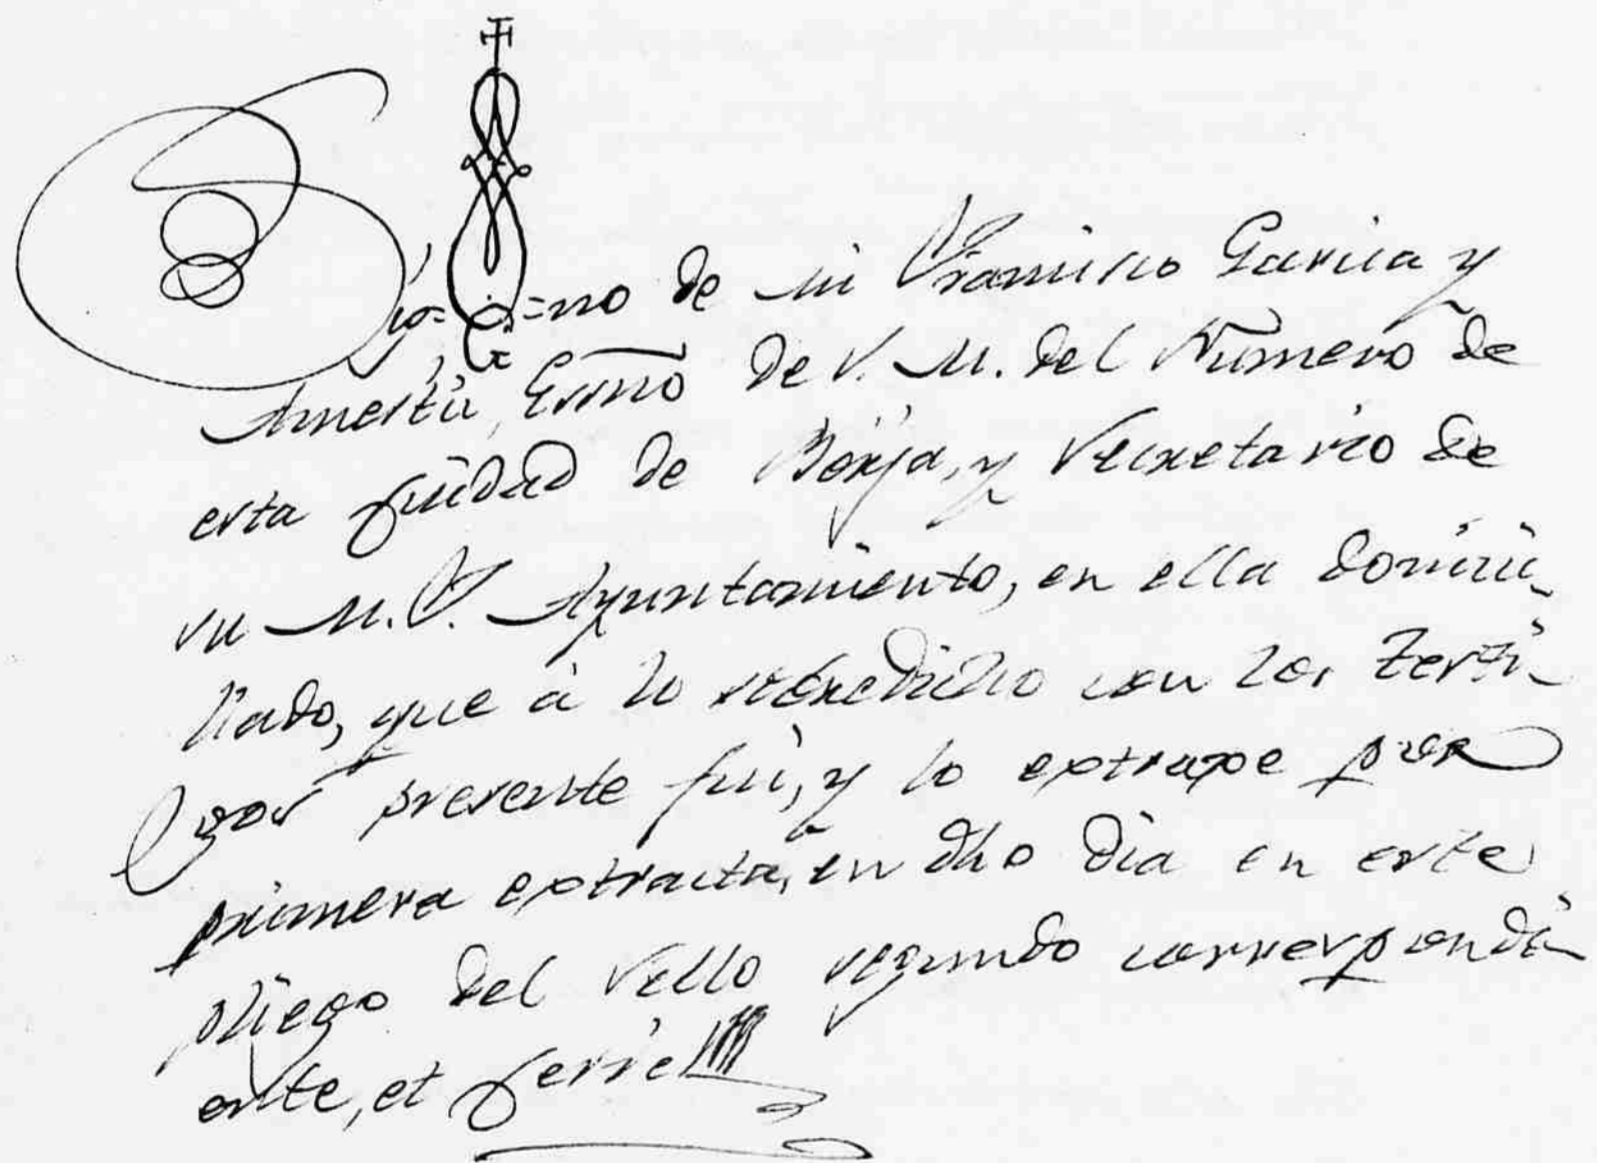 Sig=no de mi Francisco Garcia y
Amestu, Essno de S. M. del Numero de
esta Ciudad de Borja, y Secretario de
su M. I. Ayuntamiento, en ella domici-
liado, que à lo sobredicho con los Testi-
gos presente fui, y lo extraxe por
primera extracta, en dho dia en este
pliego del Sello segundo correspondi-
ente, et Cerré